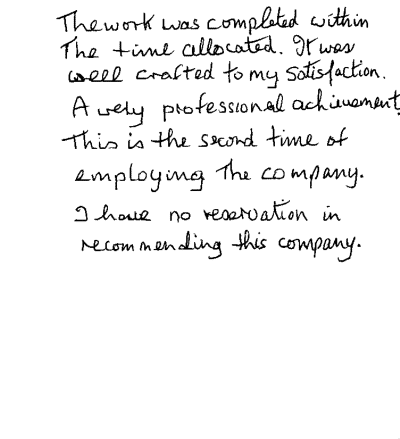 The work was completed within
The time allocated. It was
well crafted to my satisfaction.
A very professional achievement.
This is the second time of
employing The company.
I have no reservation in
recommending this company.